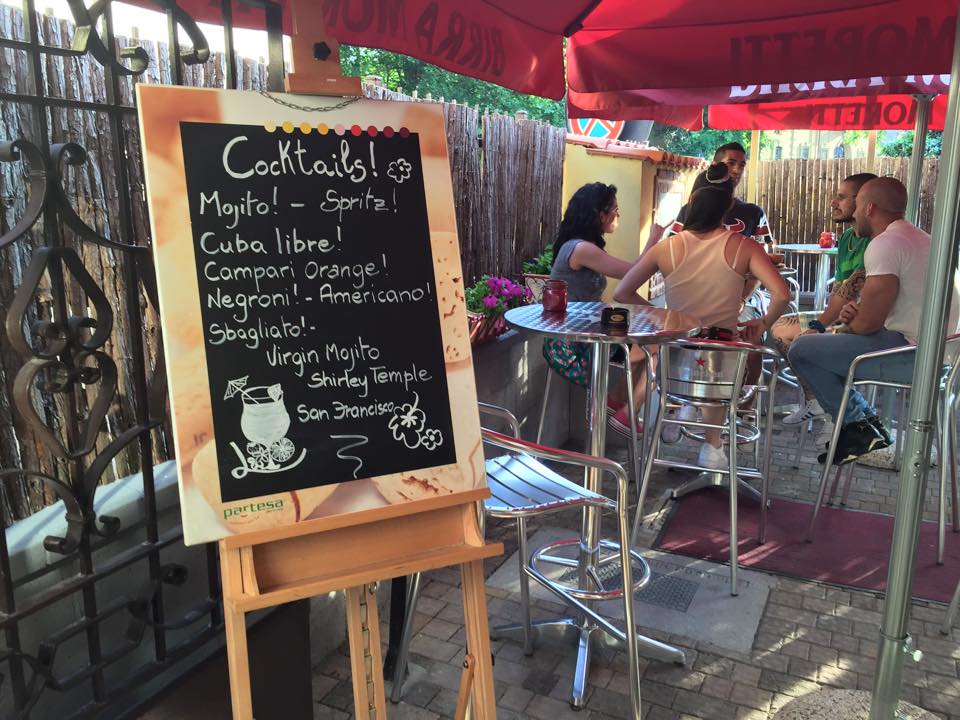 BIRRA MOR
MORETTI
MORETTI
Cocktails!
Mojito! - Spritz!
Cuba libre!
Campari Orange!
Negroni! - Americano!
Sbagliato! -
Virgin Mojito
Shirley Temple
San Francisco
partesa